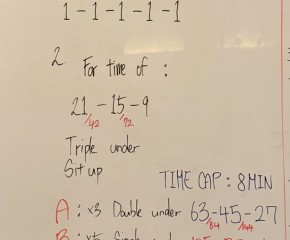 1-1-1-1-1
2 For time of :
21 - 15 - 9
/42 /72
Triple under
Sit up
TIME CAP : 8 MIN
A : x3 Double under 63-45-27
/84
B : x5